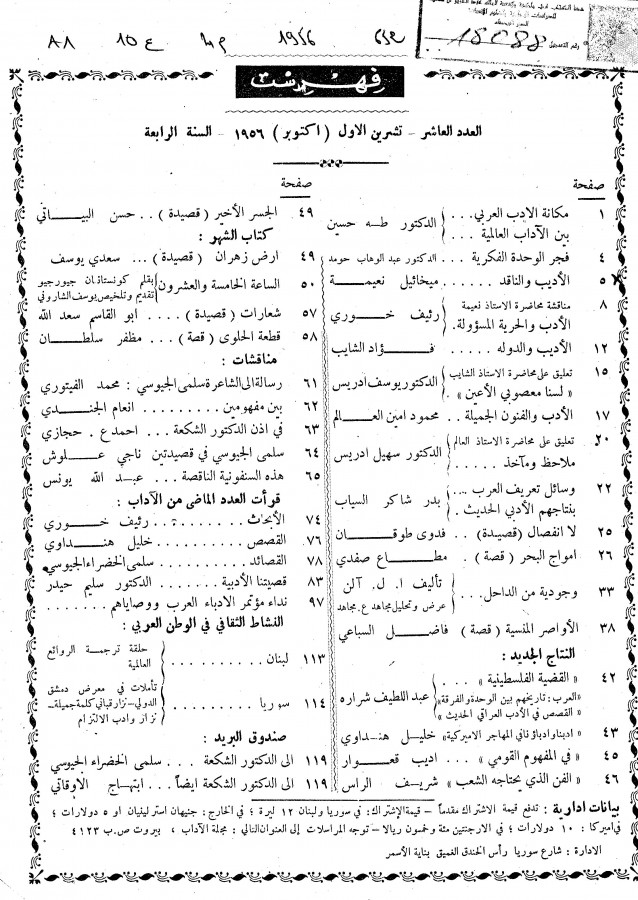 ١٨٥٨٨
رقم التسجيل
1956
فهرست
العدد العاشر – تشرين الاول ( اكتوبر ) ١٩٥٦ – السنة الرابعة
صفحة
١ مكانة الادب العربي . . . بين الآداب العالمية . . . الدكتور طـه حسين
٤ فجر الوحدة الفكرية . . . الدكتور عبد الوهاب حومد
٥ الأديب والناقد . . . . . ميخائيل نعيمة
٨ مناقشة محاضرة الاستاذ نعيمة الأدب والحرية المسؤولة . رئيف خوري
١٢ الأديب والدوله . . . . . فـؤاد الشايب
١٥ تعليق على محاضرة الاستاذ الشايب « لسنا معصوبي الأعين » . الدكتور يوسف ادريس
١٧ الأدب والفنون الجميلة . . محمود امين العـالم
٢٠ تعليق على محاضرة الاستاذ العالم ملاحظ ومآخذ . . . . . الدكتور سهيل ادريس
٢٢ وسائل تعريف العرب . . . بنتاجهم الأدبي الحديث . بدر شاكر السياب
٢٥ لا انفصال ( قصيدة ) . . فدوى طوقـان
٢٦ امواج البحر ( قصة ) . . مطـاع صفدي
٣٣ وجودية من الداخل . . . تأليف ا. ل. آلن عرض وتحليل مجاهد ع. مجاهد
٣٨ الأواصر المنسية ( قصة ) فاضـل السباعي
النتاج الجديد :
٤٢ « القضية الفلسطينية » . . . «العرب : تاريخهم بين الوحدة والفرقة» « القصص في الأدب العراقي الحديث » عبد اللطيف شراره
٤٣ « ادبنا وادباؤنا في المهاجر الاميركية » خليـل هنـداوي
٤٥ « في المفهوم القومي » . . . اديب قعـوار
٤٦ « الفن الذي يحتاجه الشعب » شريـف الراس
صفحة
٤٩ الجسر الأخير ( قصيدة ) . . حسن البيـاتي
كتاب الشهر :
٤٩ ارض زهران ( قصيدة ) . . . سعدي يوسف
٥٠ الساعة الخامسة والعشرون بقلم كونستانان جيورجيو تقديم وتلخيص يوسف الشاروني
٥٧ شعارات ( قصيدة ) . . ابو القاسم سعد الله
٥٨ قطعة الحلوى ( قصة ) . مظفر سلطـان
مناقشات :
٦١ رسالة الى الشاعرة سلمى الجيوسي : محمد الفيتوري
٦٢ بين مفهومين . . . . . . . . . انعام الجنـدي
٦٣ في اذن الدكتور الشكعة . . احمد ع . حجازي
٦٤ سلمى الجيوسي في قصيدتين ناجي علـوش
٦٥ هذه السنفونية الناقصة . . عبـد الله يونس
قرأت العدد الماضي من الآداب :
٧٤ الأبحاث . . . . . . . . . . رئيف خـوري
٧٦ القصص . . . . . . . . . . خليل هنـداوي
٧٨ القصائد . . . . . . سلمى الخضراء الجيوسي
٨٣ قضيتنا الأدبية . . . . . الدكتور سليم حيدر
٩٧ نداء مؤتمر الادباء العرب ووصاياهم . . . . . . .
النشاط الثقافي في الوطن العربي :
١١٣ لبنان . . . . . . . . حلقة ترجمـة الروائع العالمية
١١٤ سوريا . . . . . تأملات في معرض دمشق الدولي – نزار قباني كلمة جميلة – نزار وادب الالتزام
صندوق البريد :
١١٩ الى الدكتور الشكعة . . سلمى الخضراء الجيوسي
١١٩ الى الدكتور الشكعة ايضاً . . ابتهـاج الاوقاتي
بيانات ادارية : تدفع قيمة الاشتراك مقدماً – قيمة الاشتراك : في سوريا ولبنان ١٢ ليرة ؛ في الخارج : جنيهان استرلينيان او ٥ دولارات ؛
في اميركا : ١٠ دولارات ؛ في الارجنتين مئة وخمسون ريالا – توجه المراسلات إلى العنوان التالي : مجلة الآداب ، بيروت ص . ب ٤١٢٣
الادارة : شارع سوريا رأس الخندق الغميق بناية الأسمر